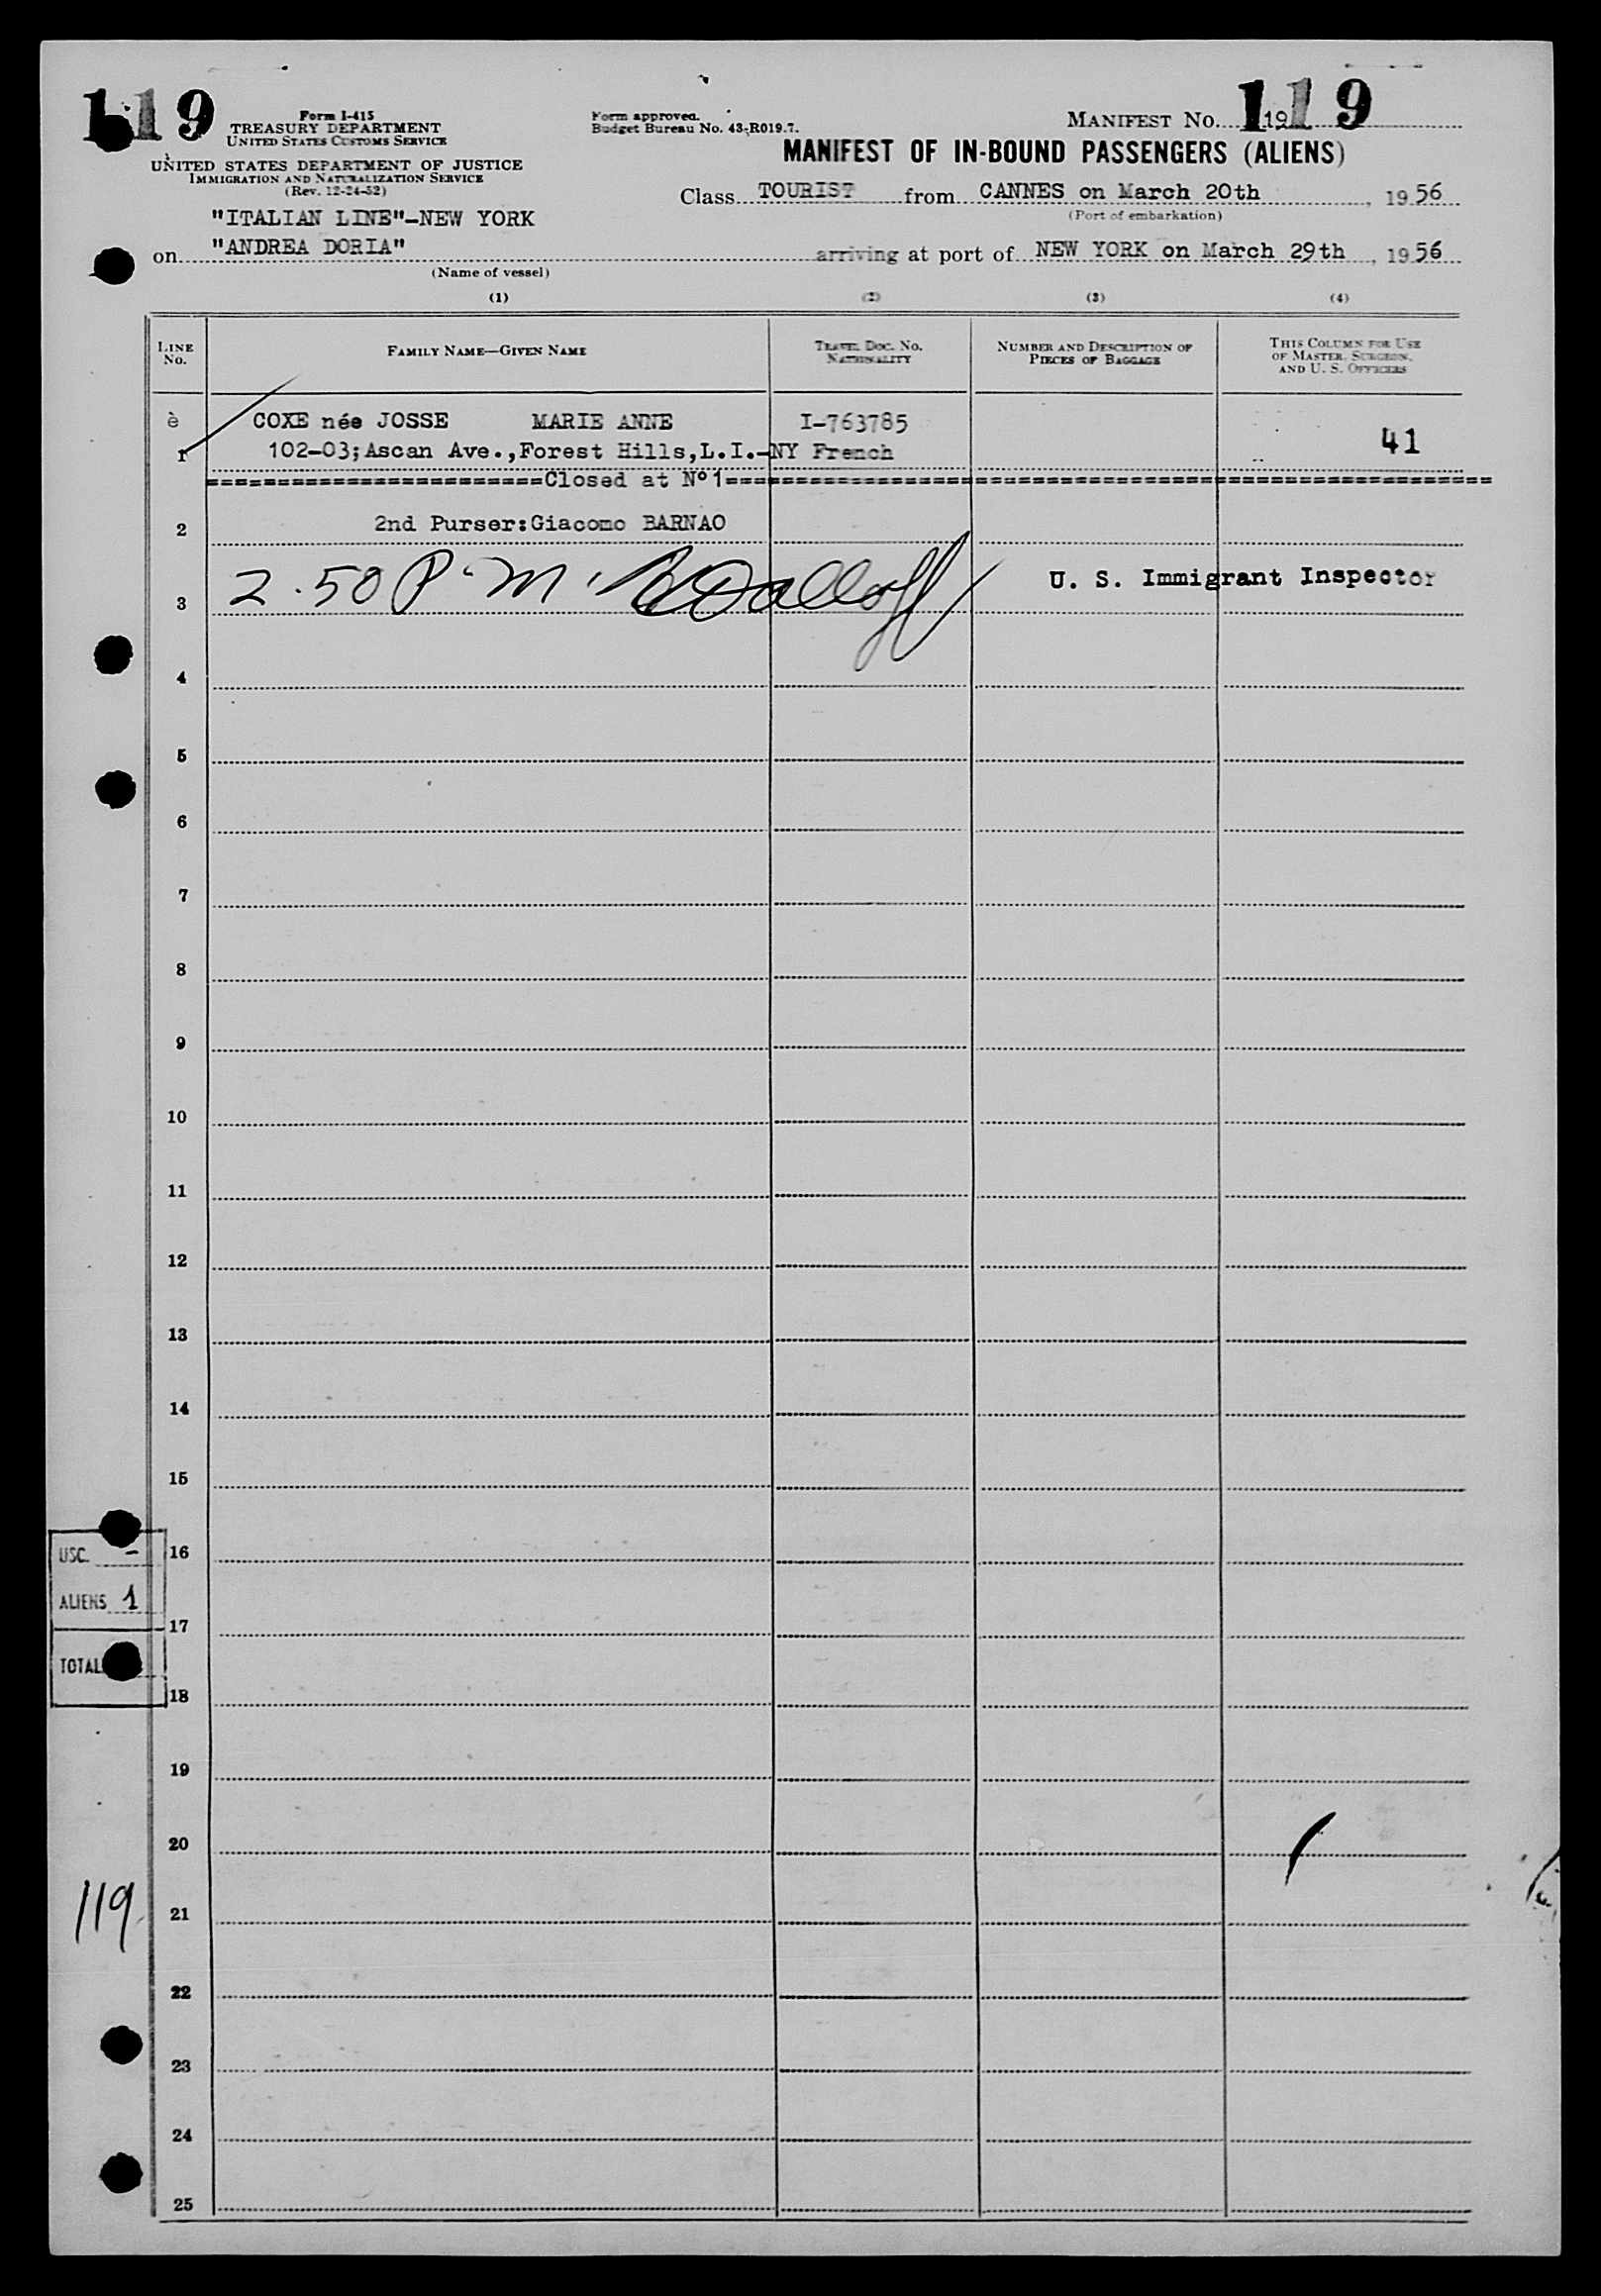 119
Form I-415
TREASURY DEPARTMENT
UNITED STATES CUSTOMS SERVICE
UNITED STATES DEPARTMENT OF JUSTICE
IMMIGRATION AND NATURALIZATION SERVICE
(Rev. 12-24-52)
Form approved.
Budget Bureau No. 43-R019.7.
MANIFEST No. 119
MANIFEST OF IN-BOUND PASSENGERS (ALIENS)
Class TOURIST from CANNES on March 20th, 1956
(Port of embarkation)
"ITALIAN LINE"-NEW YORK
on "ANDREA DORIA" arriving at port of NEW YORK on March 29th, 1956
(Name of vessel)
(1) (2) (3) (4)
LINE No. FAMILY NAME—GIVEN NAME TRAVEL DOC. No. NATIONALITY NUMBER AND DESCRIPTION OF PIECES OF BAGGAGE THIS COLUMN FOR USE OF MASTER, SURGEON, AND U. S. OFFICERS
è COXE née JOSSE MARIE ANNE I-763785
1 102-03;Ascan Ave.,Forest Hills,L.I.-NY French 41
=======================Closed at Nº1=======================
2 2nd Purser:Giacomo BARNAO
3 2.50 P.M. U. S. Immigrant Inspector
4
5
6
7
8
9
10
11
12
13
14
15
USC. - 16
ALIENS 1
17
TOTAL
18
19
20
119 21
22
23
24
25